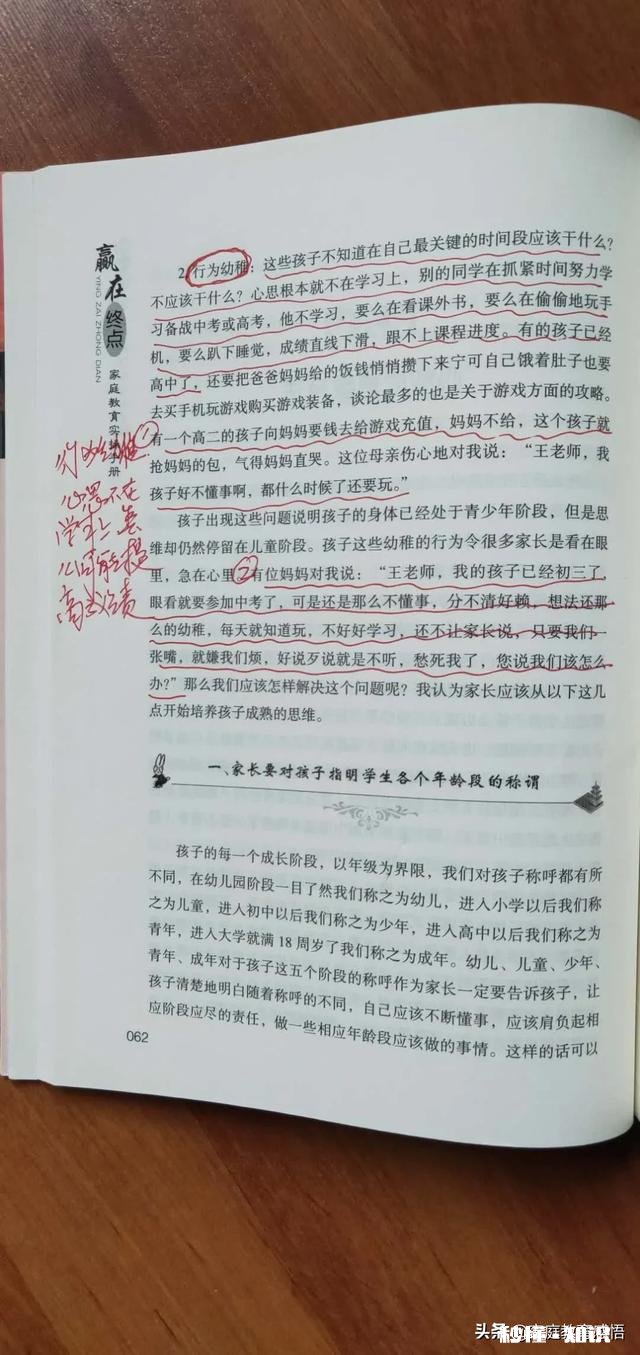 赢在终点
YING ZAI ZHONG DIAN
家庭教育实
册
2.行为幼稚：这些孩子不知道在自己最关键的时间段应该干什么？
不应该干什么？心思根本就不在学习上，别的同学在抓紧时间努力学
习备战中考或高考，他不学习，要么在看课外书，要么在偷偷地玩手
机，要么趴下睡觉，成绩直线下滑，跟不上课程进度。有的孩子已经
高中了，还要把爸爸妈妈给的饭钱悄悄攒下来宁可自己饿着肚子也要
去买手机玩游戏购买游戏装备，谈论最多的也是关于游戏方面的攻略。
有一个高二的孩子向妈妈要钱去给游戏充值，妈妈不给，这个孩子就
抢妈妈的包，气得妈妈直哭。这位母亲伤心地对我说：“王老师，我
孩子好不懂事啊，都什么时候了还要玩。”
孩子出现这些问题说明孩子的身体已经处于青少年阶段，但是思
维却仍然停留在儿童阶段。孩子这些幼稚的行为令很多家长是看在眼
里，急在心里②有位妈妈对我说：“王老师，我的孩子已经初三了，
眼看就要参加中考了，可是还是那么不懂事，分不清好赖，想法还那
么的幼稚，每天就知道玩，不好好学习，还不让家长说，只要我们一
张嘴，就嫌我们烦，好说歹说就是不听，愁死我了，您说我们该怎么
办？”那么我们应该怎样解决这个问题呢？我认为家长应该从以下这几
点开始培养孩子成熟的思维。
①
心思不在
学习上
一、家长要对孩子指明学生各个年龄段的称谓
孩子的每一个成长阶段，以年级为界限，我们对孩子称呼都有所
不同，在幼儿园阶段一目了然我们称之为幼儿，进入小学以后我们称
之为儿童，进入初中以后我们称之为少年，进入高中以后我们称之为
青年，进入大学就满18周岁了我们称之为成年。幼儿、儿童、少年、
青年、成年对于孩子这五个阶段的称呼作为家长一定要告诉孩子，让
孩子清楚地明白随着称呼的不同，自己应该不断懂事，应该肩负起相
应阶段应尽的责任，做一些相应年龄段应该做的事情。这样的话可以
062
头条